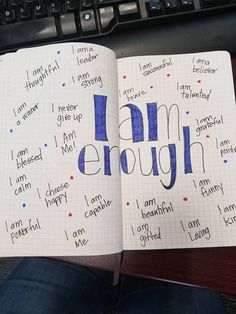 I am a
leader
I am
thoughtful
I am
strong
I am
a winner
I never
give up
I Am
Me!
I am
blessed
I am
calm
I choose
happy
I am
capable
I am
powerful
I am
Me
I am
enough
I am
successful
I am a
believer
I am
brave
I am
talented
I am
grateful
I am
I am
funny
I am
beautiful
I am
gifted
I am
Loving
I am